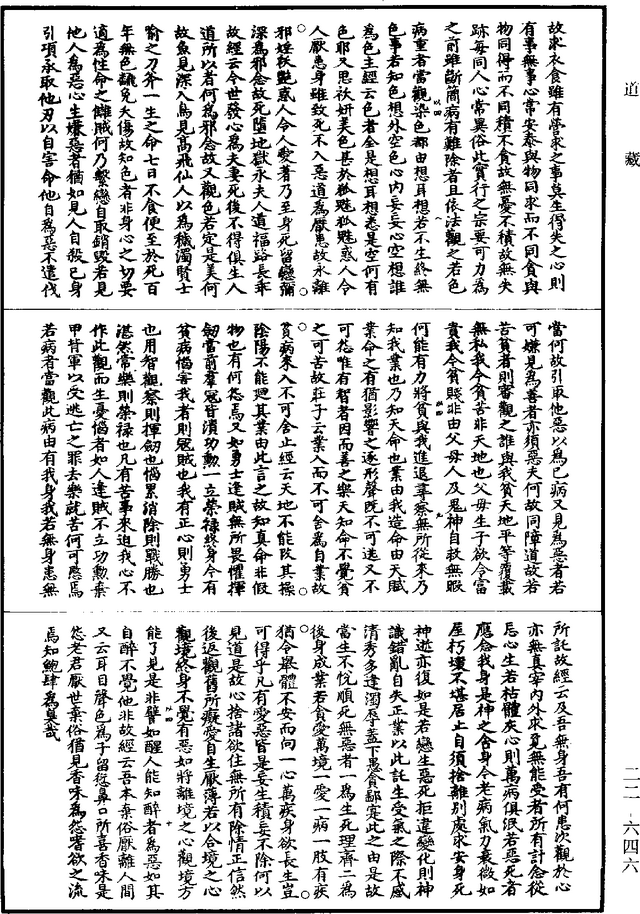 道藏
故求衣食雖有營求之事莫生得失之心則
有事無事心常安泰與物同求而不同貪與
物同得而不同積不貪故無憂不積故無失
跡每同人心常異俗此實行之宗要可力為
之前雖斷簡病有難除者且依法觀之若色
病重者當觀染色都由想耳想若不生終無
色事若知色想外空色心內妄妄心空想誰
為色主經云色者全是想耳想悉是空何有
色耶又思妖妍美色甚於狐魅狐魅惑人令
人厭患身雖致死不入惡道為厭患故永離
邪婬妖艷惑人令人愛著乃至身死留戀彌
深為邪念故死墮地獄永夫人道福路長乖
故經云今世發心為夫妻死後不得俱生人
道所以者何為邪念故又觀色若定是美何
故魚見深入鳥見高飛仙人以為穢濁賢士
喻之刀斧一生之命七日不食便至於死百
年無色飜免夭傷故知色者非身心之切要
適為性命之讎賊何乃繫戀自取銷毀若見
他人為惡心生嫌惡者猶如見人自殺己身
引項承取他刃以自害命他自為惡不遣伐
當何故引取他惡以為己病又見為惡者若
可嫌見為善者亦須惡夫何故同障道故若
苦貧者則審觀之誰與我貧天地平等覆載
無私我今貧苦非天地也父母生子欲令富
貴我今貧賤非由父母人及鬼神自救無暇
何能有力將貧與我進退尋察無所從來乃
知我業也乃知天命也業由我造命由天賦
業命之有猶影響之逐形聲既不可逃又不
可怨唯有智者因而善之樂天知命不覺貧
之可苦故莊子云業入而不可舍為自業故
貧病來入不可舍止經云天地不能改其操
陰陽不能迴其業由此言之故知真命非假
物也有何怨焉又如勇士逢賊無所畏懼揮
劒當前羣冦皆潰功勳一立榮祿終身今有
貧病惱害我者則冦賊也我有正心則勇士
也用智觀察則揮劒也惱累消除則戰勝也
湛然常樂則榮祿也凡有苦事來迫我心不
作此觀而生憂惱者如人逢賊不立功勳棄
甲背軍以受逃亡之罪去樂就苦何可愍焉
若病者當觀此病由有我身我若無身患無
所託故經云及吾無身吾有何患次觀於心
亦無真宰內外求覓無能受者所有計念從
妄心生若枯體灰心則萬病俱泯若惡死者
應念我身是神之舍身今老病氣力衰微如
屋朽壞不堪居止自須捨離別處求安身死
神逝亦復如是若戀生惡死拒違變化則神
識錯亂自失正業以此託生受氣之際不感
清秀多逢濁辱蓋下愚貪鄙寔此之由是故
當生不悅順死無惡者一為生死理齊二為
後身成業若貪愛萬境一愛一病一肢有疾
猶令舉體不安而向一心萬疾身欲長生豈
可得乎凡有愛惡皆是妄生積妄不除何以
見道是故心捨諸欲住無所有除情正信然
後返觀舊所癡愛自生厭薄若以合境之心
觀境終身不覺有惡如將離境之心觀境方
能了見是非譬如醒人能知醉者為惡如其
自醉不覺他非故經云吾本棄俗厭離人間
又云耳目聲色為子留愆鼻口所喜香味是
怨老君厭世棄俗猶見香味為怨嗜欲之流
焉知鮑肆為臭哉
二二-六四六